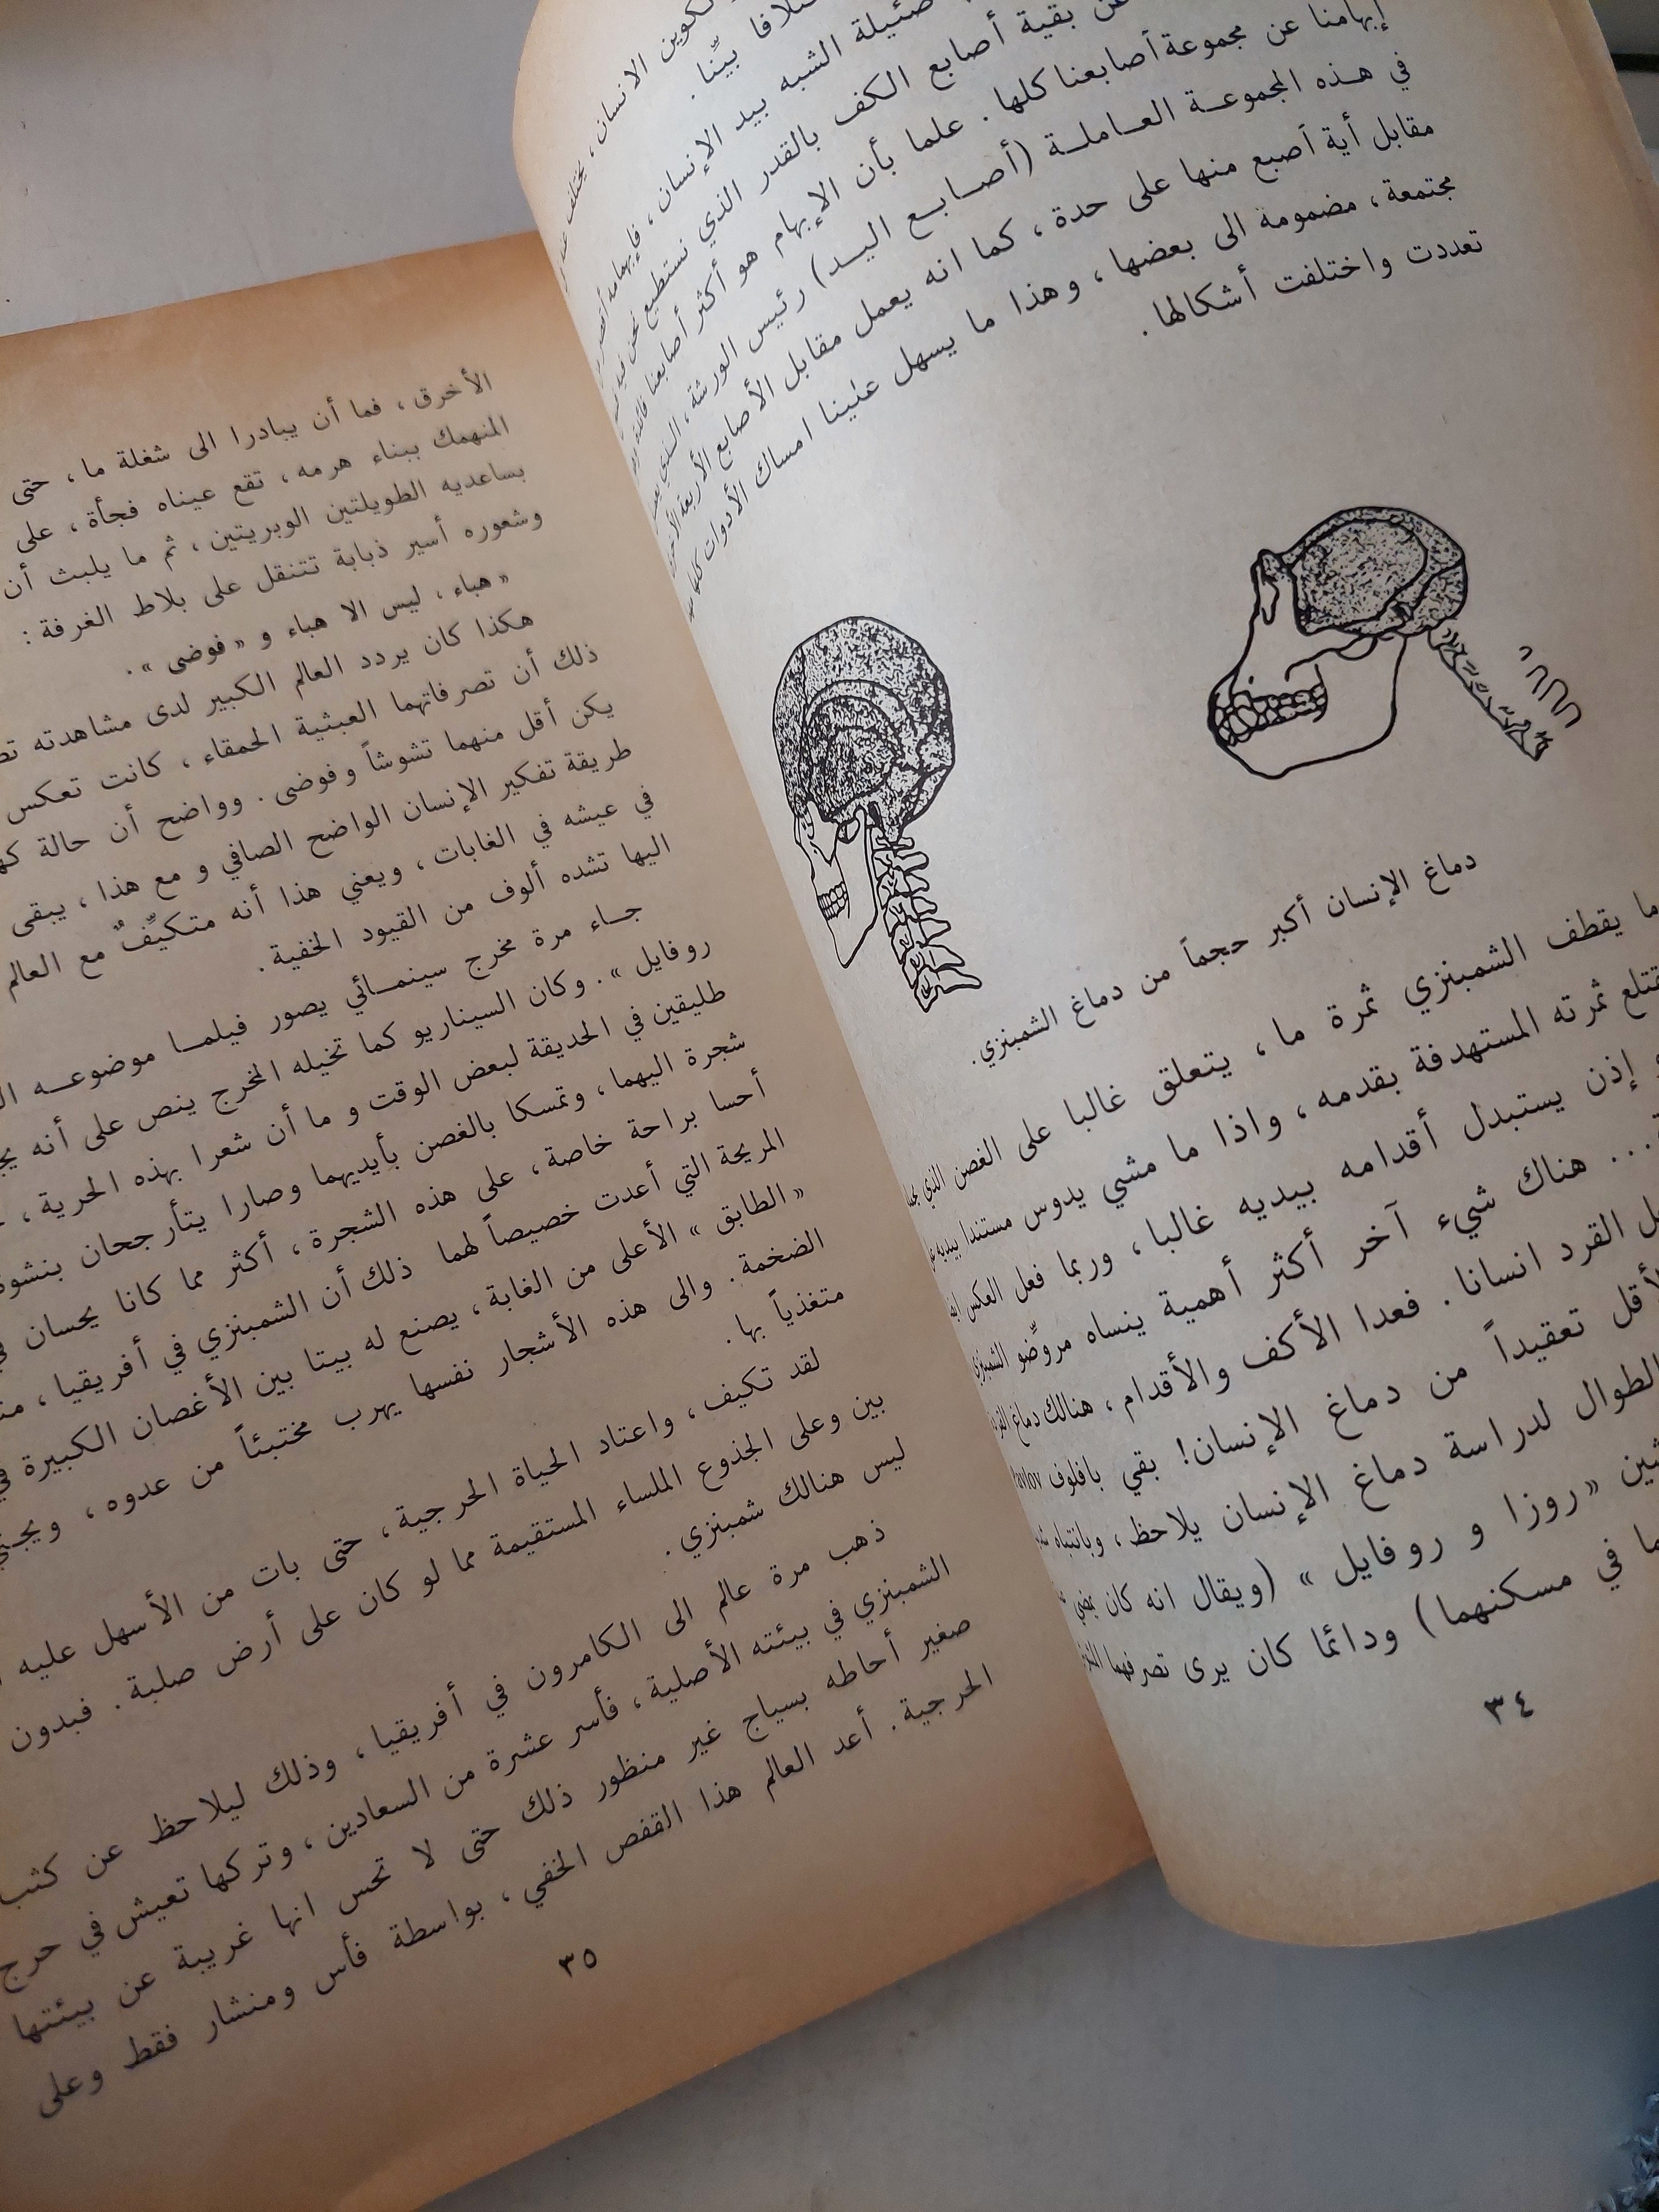 لتكوين الانسان، يختلف
بيِّنا.
ضئيلة الشبه بيد الإنسان، فإبهامه أقصر
عن بقية أصابع الكف بالقدر الذي نستطيع نحن فيه
إبهامنا عن مجموعة أصابعنا كلها. علما بأن الإبهام هو أكثر أصابعنا
في هذه المجموعة العاملة (أصابع اليد) رئيس الورشة، الذي
مقابل أية أصبع منها على حدة، كما انه يعمل مقابل الأصابع الأربعة
مجتمعة، مضمومة الى بعضها، وهذا ما يسهل علينا امساك الأدوات كلها
تعددت واختلفت أشكالها.
دماغ الإنسان أكبر حجماً من دماغ الشمبنزي.
ما يقطف الشمبنزي ثمرة ما، يتعلق غالبا على الغصن الذي
يقتلع ثمرته المستهدفة بقدمه، واذا ما مشي يدوس مستندا بيديه
إذن يستبدل أقدامه بيديه غالبا، وربما فعل العكس
... هناك شيء آخر أكثر أهمية ينساه مروِّضو الشمبنزي
القرد انسانا. فعدا الأكف والأقدام، هنالك دماغ
الأقل تعقيداً من دماغ الإنسان! بقي بافلوف
الطوال لدراسة دماغ الإنسان يلاحظ، وبانتباه
«روزا و روفايل» (ويقال انه كان
في مسكنهما) ودائما كان يرى تصرفهما
٣٤
الأخرق، فما أن يبادرا الى شغلة ما، حتى
المنهمك ببناء هرمه، تقع عيناه فجأة، على
بساعديه الطويلتين الوبريتين، ثم ما يلبث أن
وشعوره أسير ذبابة تتنقل على بلاط الغرفة:
«هباء، ليس الا هباء و «فوضى».
هكذا كان يردد العالم الكبير لدى مشاهدته
ذلك أن تصرفاتهما العبثية الحمقاء، كانت تعكس
يكن أقل منهما تشوشاً وفوضى. وواضح أن حالة
طريقة تفكير الإنسان الواضح الصافي و مع هذا، يبقى
في عيشه في الغابات، ويعني هذا أنه متكيِّفٌ مع العالم
اليها تشده ألوف من القيود الخفية.
جاء مرة مخرج سينمائي يصور فيلما موضوعه
روفايل». وكان السيناريو كما تخيله المخرج ينص على أنه
طليقين في الحديقة لبعض الوقت و ما أن شعرا بهذه الحرية،
شجرة اليهما، وتمسكا بالغصن بأيديهما وصارا يتأرجحان بنشوة
أحسا براحة خاصة، على هذه الشجرة، أكثر مما كانا يحسان
المريحة التي أعدت خصيصاً لهما ذلك أن الشمبنزي في أفريقيا،
«الطابق» الأعلى من الغابة، يصنع له بيتا بين الأغصان الكبيرة
الضخمة. والى هذه الأشجار نفسها يهرب مختبئاً من عدوه،
متغذياً بها.
لقد تكيف، واعتاد الحياة الحرجية، حتى بات من الأسهل عليه
بين وعلى الجذوع الملساء المستقيمة مما لو كان على أرض صلبة. فبدون
ليس هنالك شمبنزي.
ذهب مرة عالم الى الكامرون في أفريقيا، وذلك ليلاحظ عن كثب
الشمبنزي في بيئته الأصلية، فأسر عشرة من السعادين، وتركها تعيش في حرج
صغير أحاطه بسياج غير منظور ذلك حتى لا تحس انها غريبة عن بيئتها
الحرجية. أعد العالم هذا القفص الخفي، بواسطة فأس ومنشار فقط وعلى
٣٥